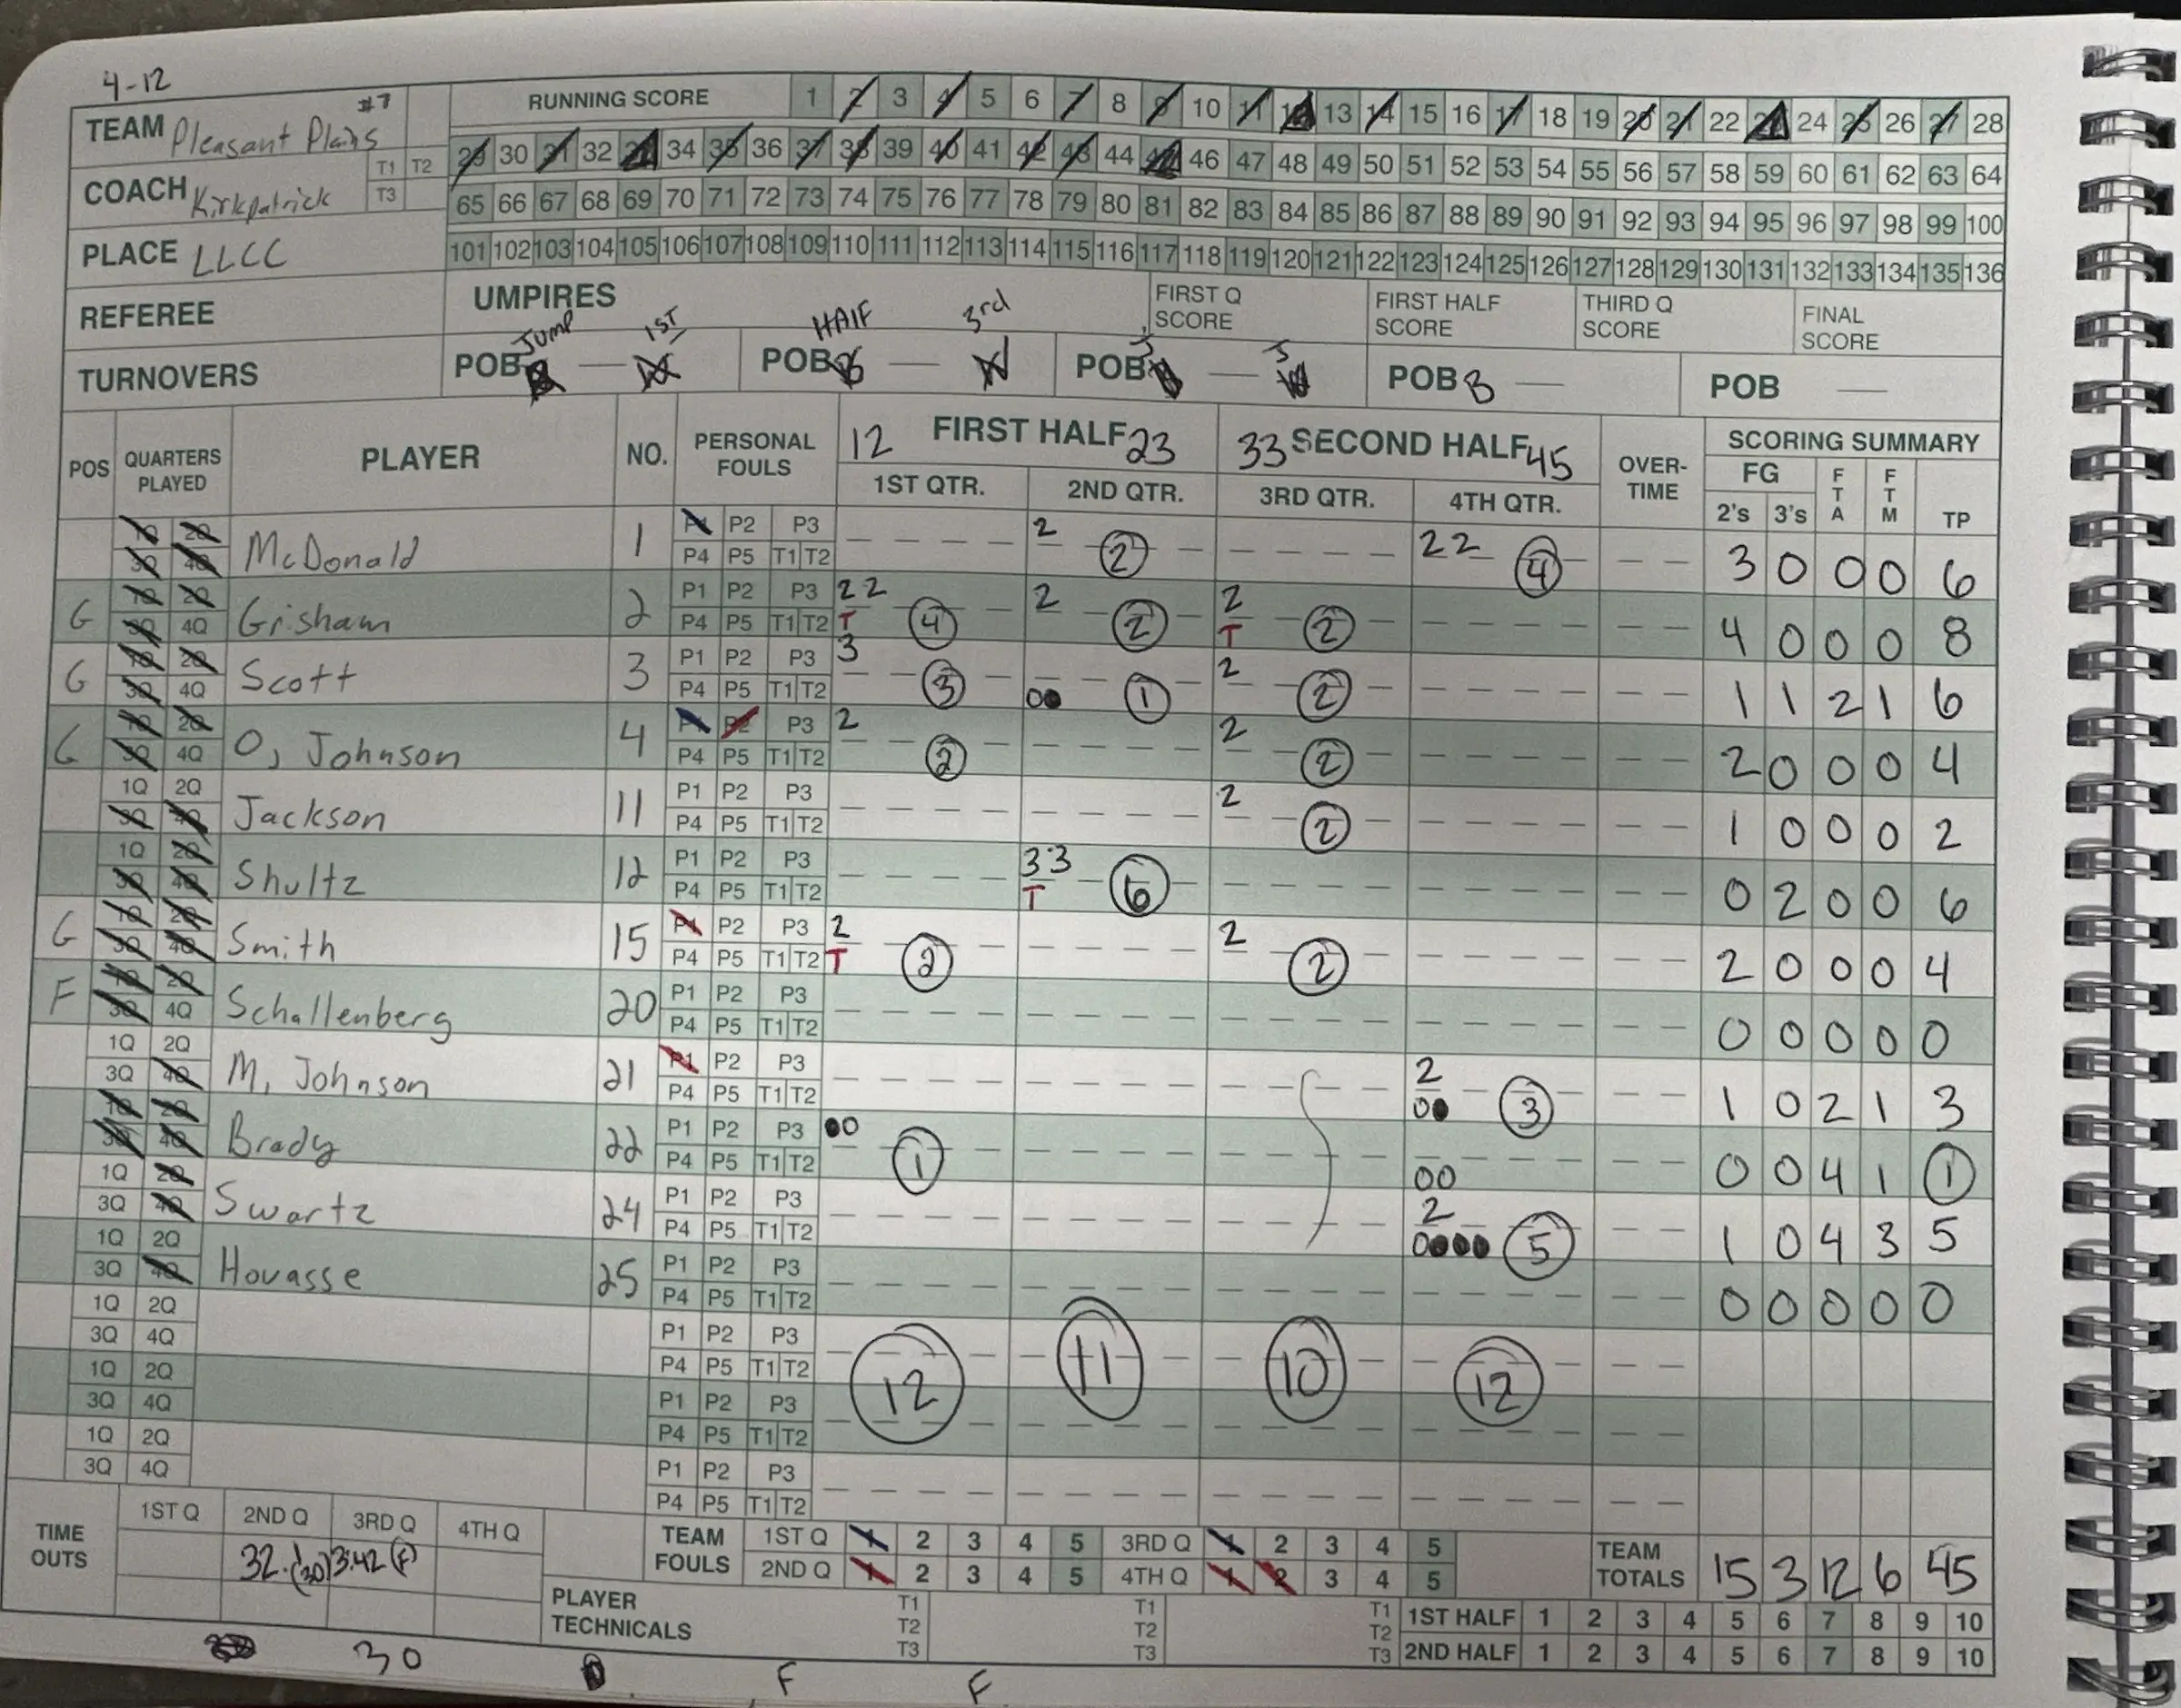 4-12
#7
TEAM Pleasant Plains
RUNNING SCORE 1 2 3 4 5 6 7 8 9 10 11 12 13 14 15 16 17 18 19 20 21 22 23 24 25 26 27 28
T1 T2 29 30 31 32 33 34 35 36 37 38 39 40 41 42 43 44 45 46 47 48 49 50 51 52 53 54 55 56 57 58 59 60 61 62 63 64
COACH Kirkpatrick T3 65 66 67 68 69 70 71 72 73 74 75 76 77 78 79 80 81 82 83 84 85 86 87 88 89 90 91 92 93 94 95 96 97 98 99 100
PLACE LLCC 101 102 103 104 105 106 107 108 109 110 111 112 113 114 115 116 117 118 119 120 121 122 123 124 125 126 127 128 129 130 131 132 133 134 135 136
REFEREE UMPIRES FIRST Q SCORE FIRST HALF SCORE THIRD Q SCORE FINAL SCORE
Jump 1ST HAlF 3rd J J
TURNOVERS POB POB B POB POB B POB
POS QUARTERS PLAYED PLAYER NO. PERSONAL FOULS 12 FIRST HALF 23 33 SECOND HALF 45 OVER-TIME SCORING SUMMARY
1ST QTR. 2ND QTR. 3RD QTR. 4TH QTR. FG 2's 3's FTA FTM TP
1Q 2Q 3Q 4Q McDonald 1 P1 P2 P3 P4 P5 T1 T2 2 2 2 2 4 3 0 0 0 6
G 1Q 2Q 3Q 4Q Grisham 2 P1 P2 P3 P4 P5 T1 T2 2 2 T 4 2 2 2 T 2 4 0 0 0 8
G 1Q 2Q 3Q 4Q Scott 3 P1 P2 P3 P4 P5 T1 T2 3 3 1 2 2 1 1 2 1 6
G 1Q 2Q 3Q 4Q O, Johnson 4 P1 P2 P3 P4 P5 T1 T2 2 2 2 2 2 0 0 0 4
1Q 2Q 3Q 4Q Jackson 11 P1 P2 P3 P4 P5 T1 T2 2 2 1 0 0 0 2
1Q 2Q 3Q 4Q Shultz 12 P1 P2 P3 P4 P5 T1 T2 3 3 T 6 0 2 0 0 6
G 1Q 2Q 3Q 4Q Smith 15 P1 P2 P3 P4 P5 T1 T2 2 T 2 2 2 2 0 0 0 4
F 1Q 2Q 3Q 4Q Schallenberg 20 P1 P2 P3 P4 P5 T1 T2 0 0 0 0 0
1Q 2Q 3Q 4Q M, Johnson 21 P1 P2 P3 P4 P5 T1 T2 2 3 1 0 2 1 3
1Q 2Q 3Q 4Q Brady 22 P1 P2 P3 P4 P5 T1 T2 1 00 0 0 4 1 1
1Q 2Q 3Q 4Q Swartz 24 P1 P2 P3 P4 P5 T1 T2 2 5 1 0 4 3 5
1Q 2Q 3Q 4Q Hovasse 25 P1 P2 P3 P4 P5 T1 T2 0 0 0 0 0
1Q 2Q 3Q 4Q P1 P2 P3 P4 P5 T1 T2 12 11 10 12
1Q 2Q 3Q 4Q P1 P2 P3 P4 P5 T1 T2
1Q 2Q 3Q 4Q P1 P2 P3 P4 P5 T1 T2
TIME OUTS 1ST Q 2ND Q 3RD Q 4TH Q
32. (30) 3:42 (F)
TEAM FOULS 1ST Q 1 2 3 4 5 3RD Q 1 2 3 4 5
2ND Q 1 2 3 4 5 4TH Q 1 2 3 4 5
TEAM TOTALS 15 3 12 6 45
PLAYER TECHNICALS T1 T2 T3 T1 T2 T3 T1 T2 T3
1ST HALF 1 2 3 4 5 6 7 8 9 10
2ND HALF 1 2 3 4 5 6 7 8 9 10
30 F F